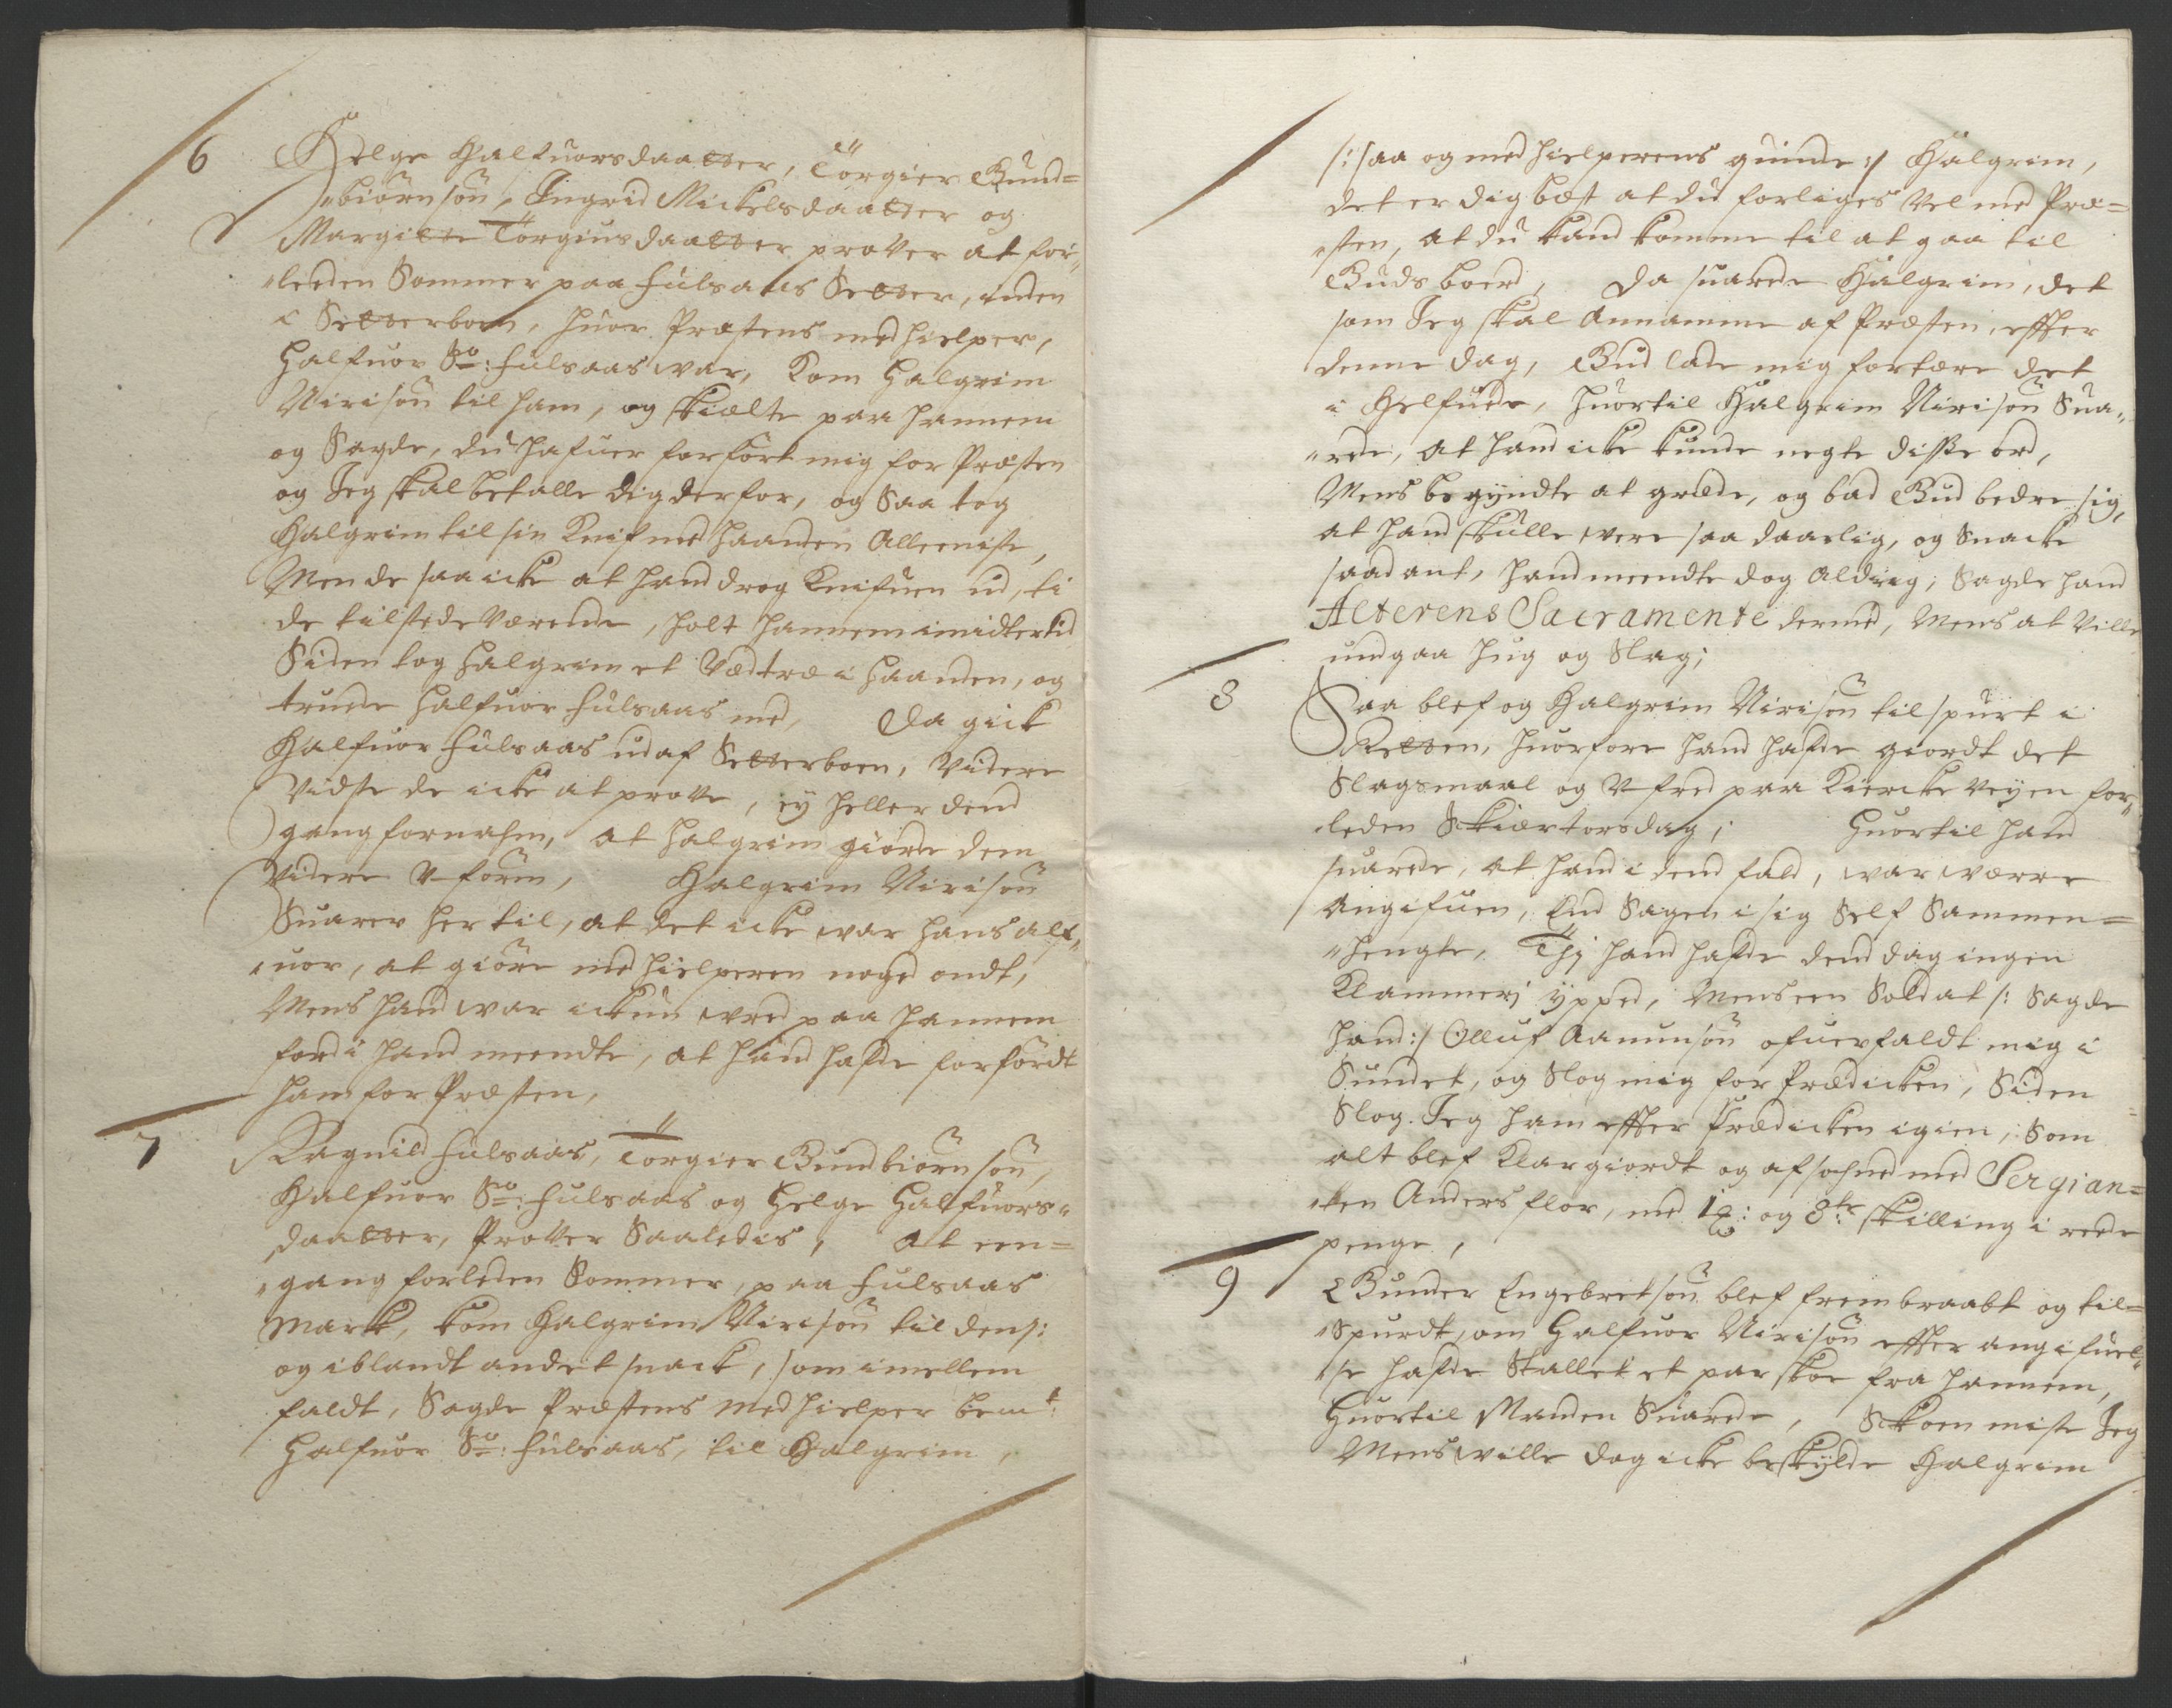 6 Helge Halfuorsdaatter, Törgier Gund=
"biörnsön, Ingrid Mickelsdaatter og
Margitte Törgiusdaatter prover at for,,
"leeden Sommer paa Fulsaas Setter, inden
i Setterboen, huor Præstens medhielper,
Halfuor So: Fulsaas war, Kom Halgrim
Nirisön til ham, og skielte paa hannem
og Sagde, du hafuer forfört mig for Præsten
og Jeg skal betalle dig derfor, og Saa tog
Halgrim til sin Knif med haanden Alleeniste,
Men de saa icke at hand drog Knifuen ud, ti
de tilstede Værende, holt hannem imidlertid
Siden tog Halgrim et Vedtræ i Haanden, og
truede Halfuor Fulsaas med, Da gick
Halfuor Fulsaas ud af Setterboen, Videre
Vidste de icke at prove, ey heller dend
gang fornahm, at Halgrim giorde dem
Videre Vform, Halgrim Nirisön
Suarer her til, at det icke war hans alf,,
"uor, at giöre medhielperen noged ondt,
Mens hand war ickun wred paa hannem
fordi hand meendte, at hand hafde forfördt
ham for Præsten,
7 Ragnild Fulsaas, Törgier Gundbiörnsön,
Halfuor So: Fulsaas og Helge Halfuors=
daatter, Prover Saaledis, At een=
"gang forleden Sommer, paa Fulsaas
Marck, kom Halgrim Nirisön til dem:
og iblandt andet snack, som imellem
faldt, Sagde Præstens Medhielper bemt:
Halfuor So: Fulsaas, til Halgrim,
/: saa og medhielperens quinde :/ Halgrim,
det er dig best at du forliges Vel med Præ=
"sten, at du kand komme til at gaa til
Guds boerd, Da suarede Halgrim, det
som Jeg skal Annamme af Præsten, effter
denne dag, Gud lade mig fortære det
i Helfuede, huortil Halgrim Nirisön Sua,,
"rede, at hand icke kunde negte disse ord,
Mens begyndte at græde, og bad Gud bedre sig,
at hand skulle were saa daarlig, og Snacke
saadant, hand meendte dog aldrig, Sagde hand
Alterens Sacramente dermed, Mens at Ville
undgaa hug og Slag;
8 Saa blef og Halgrim Nirisön tilspurt i
Retten, huorfore hand hafde giordt det
Slagsmaal og Vfred paa Kiercke Veyen for,,
leden Skiertorsdag; Huortil hand
suarede, at hand i dend fald, war werre
Angifuen, End Sagen i sig Self Sammen=
"hengte, Thj hand hafde dend dag ingen
Klammerj ypped, Mens een Soldat /: Sagde
hand :/ Olluf Aamunsön ofuerfaldt mig i
Sundet, og Slog mig for Prædicken, Siden
Slog Jeg ham effter Prædicken igien, Som
alt blef Klar giordt og afsohned med Sergian=
"ten Anders flor, med 1 : og 8te skilling i reede
penge,
9 Gunder Engebretsön blef frembraabt og til=
"Spurdt, om Halfuor Nirisön effter angifuel,,
"se hafde Stallet et par skoe fra hannem,
Huortil Manden Suarede, Skoen miste Jeg
Mens wille dog icke beskylde Halgrim